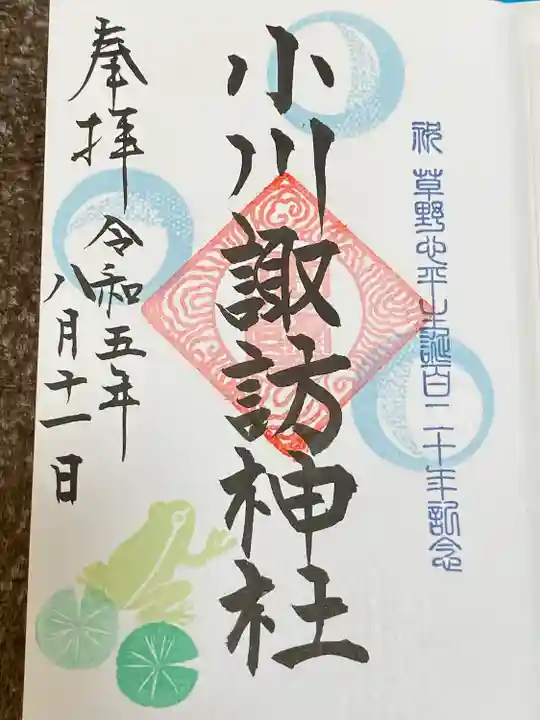 祝 草野心平生誕百二十年記念
小川諏訪神社
奉拝
令和五年
八月十一日